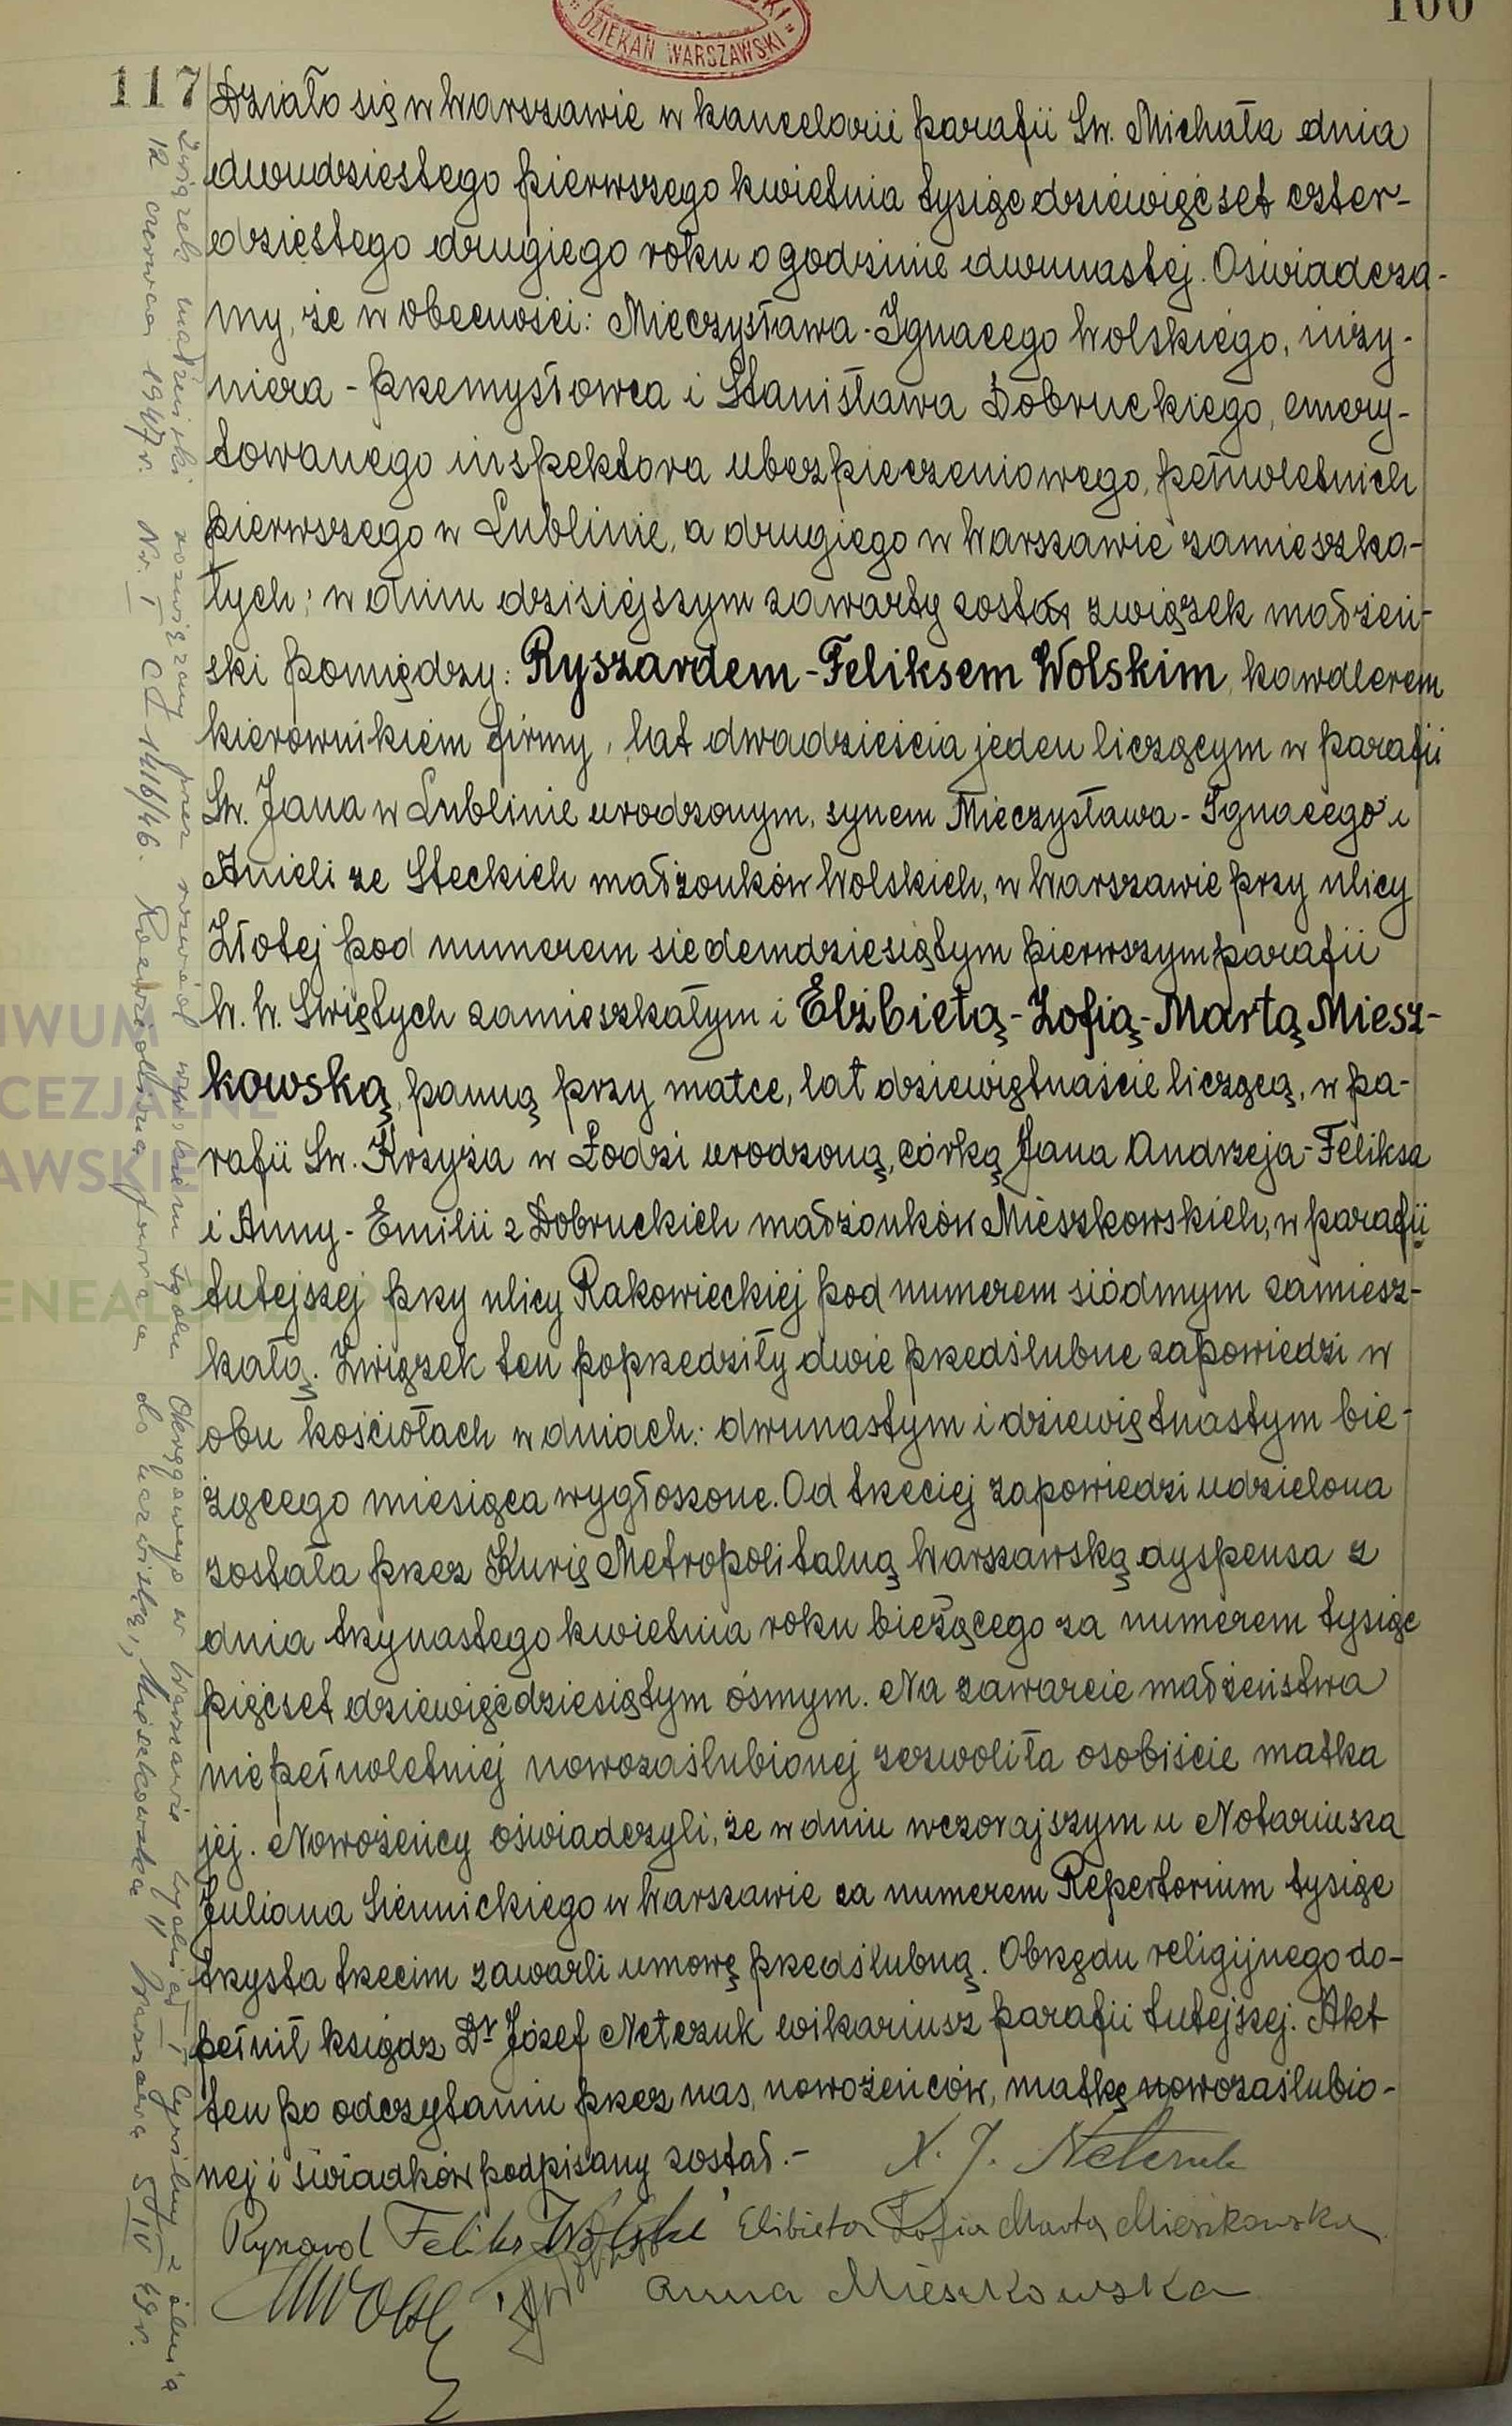 100
DZIEKAN WARSZAWSKI
117
Działo się w Warszawie w kancelarii parafii Św. Michała dnia
dwudziestego pierwszego kwietnia tysiąc dziewięćset czter-
dziestego drugiego roku o godzinie dwunastej. Oświadcza-
my, że w obecności: Mieczysława-Ignacego Wolskiego, inży-
niera - przemysłowca i Stanisława Dobruckiego, emery-
towanego inspektora ubezpieczeniowego, pełnoletnich
pierwszego w Lublinie, a drugiego w Warszawie zamieszka-
łych; w dniu dzisiejszym zawarty został związek małżeń-
ski pomiędzy: Ryszardem-Feliksem Wolskim, kawalerem
kierownikiem firmy, lat dwadzieścia jeden liczącym w parafii
Św. Jana w Lublinie urodzonym, synem Mieczysława-Ignacego i
Anieli ze Steckich małżonków Wolskich, w Warszawie przy ulicy
Złotej pod numerem siedemdziesiątym pierwszym parafii
W. W. Świętych zamieszkałym i Elżbietą-Zofią-Martą Miesz-
kowską, panną przy matce, lat dziewiętnaście liczącą, w pa-
rafii Św. Krzyża w Łodzi urodzoną, córką Jana Andrzeja-Feliksa
i Anny-Emilii z Dobruckich małżonków Mieszkowskich, w parafii
tutejszej przy ulicy Rakowieckiej pod numerem siódmym zamiesz-
kałą. Związek ten poprzedziły dwie przedślubne zapowiedzi w
obu kościołach w dniach: dwunastym i dziewiętnastym bie-
żącego miesiąca wygłoszone. Od trzeciej zapowiedzi udzielona
została przez Kurię Metropolitalną Warszawską dyspensa z
dnia trzynastego kwietnia roku bieżącego za numerem tysiąc
pięćset dziewięćdziesiątym ósmym. Na zawarcie małżeństwa
niepełnoletniej nowozaślubionej zezwoliła osobiście matka
jej. Nowożeńcy oświadczyli, że w dniu wczorajszym u Notariusza
Juliana Siennickiego w Warszawie za numerem Repertorium tysiąc
trzysta trzecim zawarli umowę przedślubną. Obrzędu religijnego do-
pełnił ksiądz Dr Józef Netczuk wikariusz parafii tutejszej. Akt
ten po odczytaniu przez nas, nowożeńców, matkę nowozaślubio-
nej i świadków podpisany został.-
X. J. Netczuk
Ryszard Feliks Wolski Elżbieta Zofia Marta Mieszkowska
MWolski
Anna Mieszkowska
Związek małżeński rozwiązany przez rozwód wyrokiem Sądu Okręgowego w Warszawie Wydział I Cywilny z dnia
12 czerwca 1947 r. Nr. I C 1416/46. Rozwiedziona powraca do nazwiska „Mieszkowska" Warszawa 5/IV 49 r.